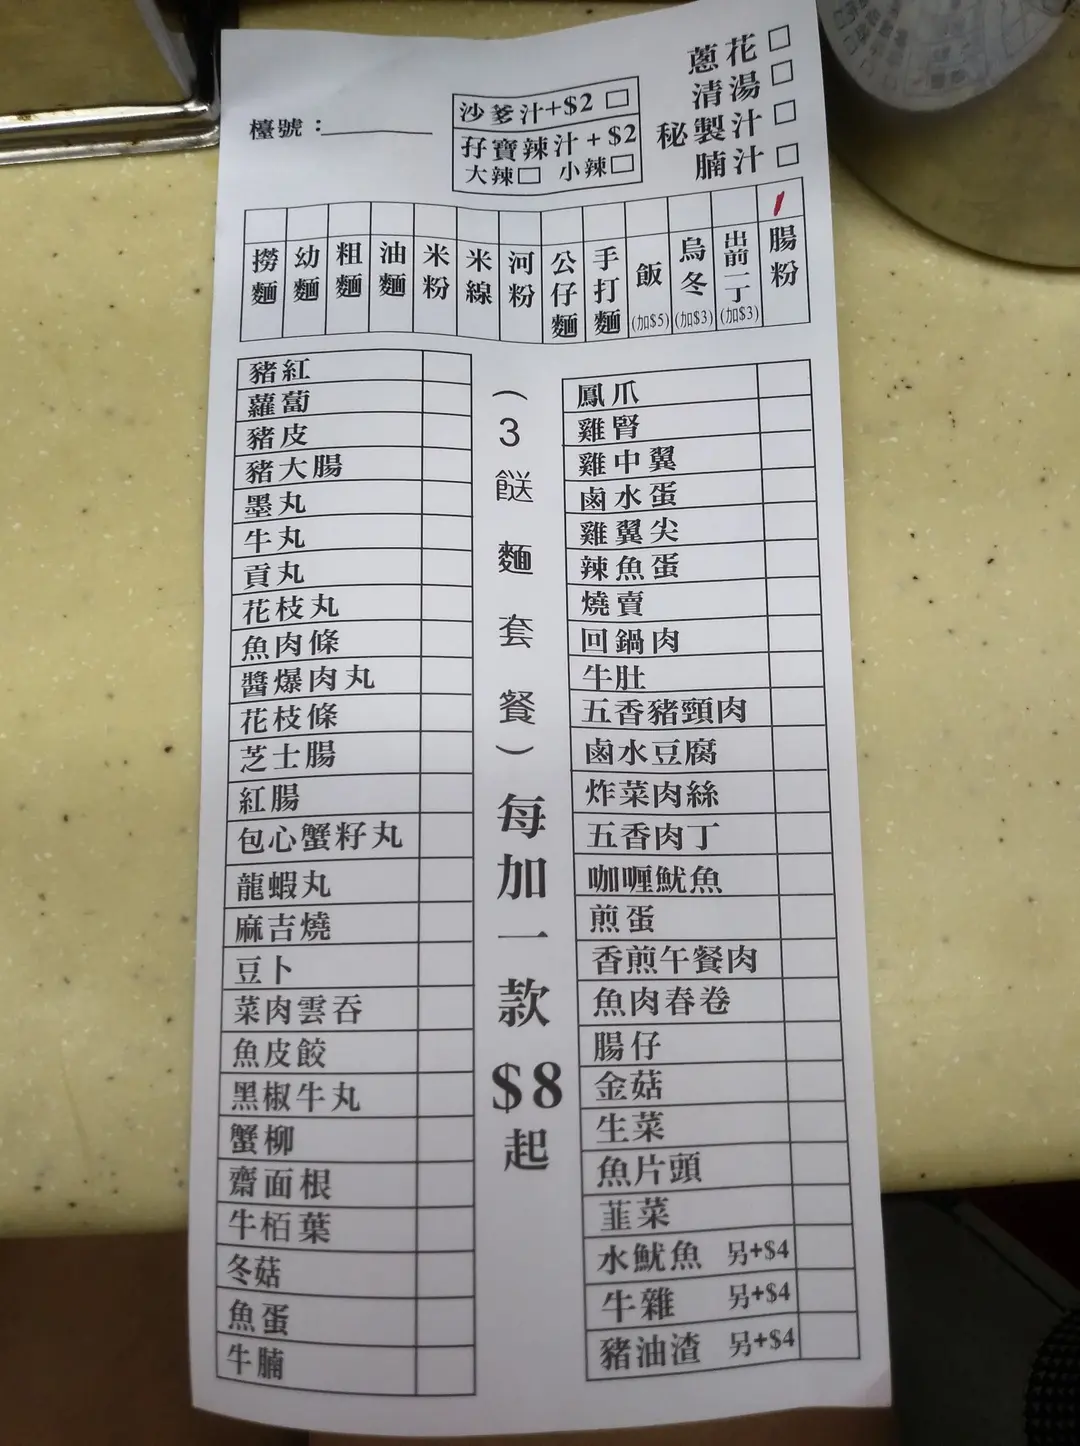 檯號：
沙爹汁+$2 □
孖寶辣汁+$2
大辣□ 小辣□
蔥花 □
清湯 □
秘製汁 □
腩汁 □
撈麵
幼麵
粗麵
油麵
米粉
米線
河粉
公仔麵
手打麵
飯(加$5)
烏冬(加$3)
出前一丁(加$3)
腸粉
豬紅
蘿蔔
豬皮
豬大腸
墨丸
牛丸
貢丸
花枝丸
魚肉條
醬爆肉丸
花枝條
芝士腸
紅腸
包心蟹籽丸
龍蝦丸
麻吉燒
豆卜
菜肉雲吞
魚皮餃
黑椒牛丸
蟹柳
齋面根
牛栢葉
冬菇
魚蛋
牛腩
（3餸麵套餐）每加一款$8起
鳳爪
雞腎
雞中翼
鹵水蛋
雞翼尖
辣魚蛋
燒賣
回鍋肉
牛肚
五香豬頸肉
鹵水豆腐
炸菜肉絲
五香肉丁
咖喱魷魚
煎蛋
香煎午餐肉
魚肉春卷
腸仔
金菇
生菜
魚片頭
韮菜
水魷魚 另+$4
牛雜 另+$4
豬油渣 另+$4